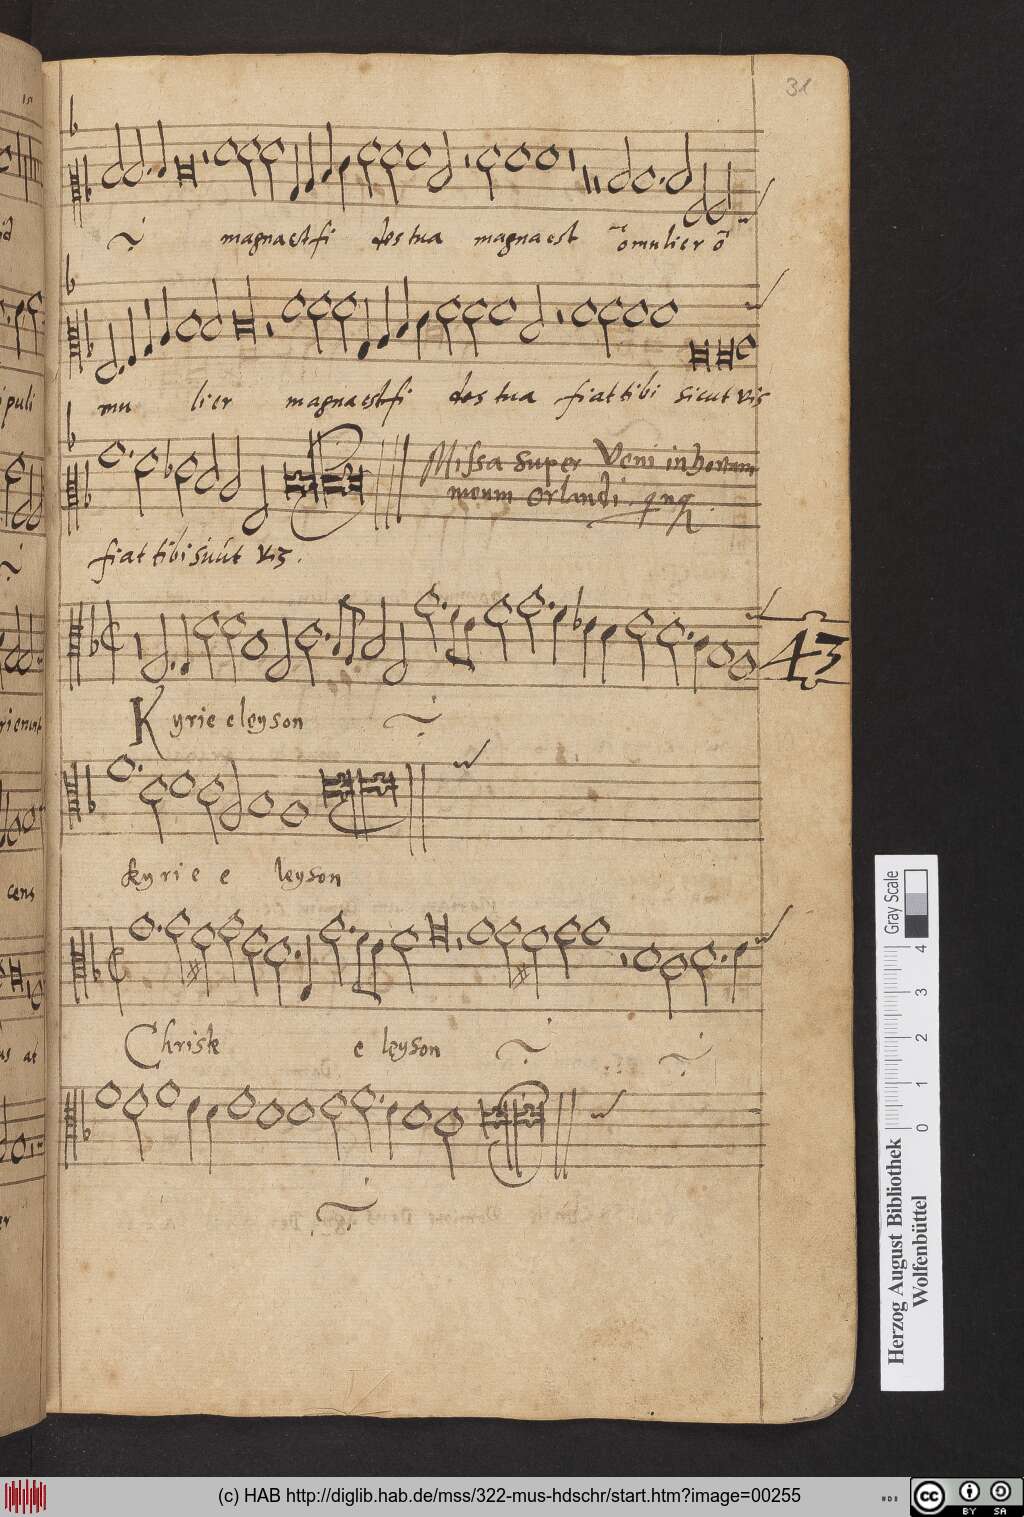 31
magna est fi des tua magna est ô mulier ô
mu lier magna est fi des tua fiat tibi sicut vis
Missa super Veni in hortum
meum Orlandi
fiat tibi sicut vis.
43
Kyrie eleyson
kyrie e leyson
Christe e leyson
Gray Scale
0 1 2 3 4
Herzog August Bibliothek
Wolfenbüttel
(c) HAB http://diglib.hab.de/mss/322-mus-hdschr/start.htm?image=00255
HAB
cc
BY SA